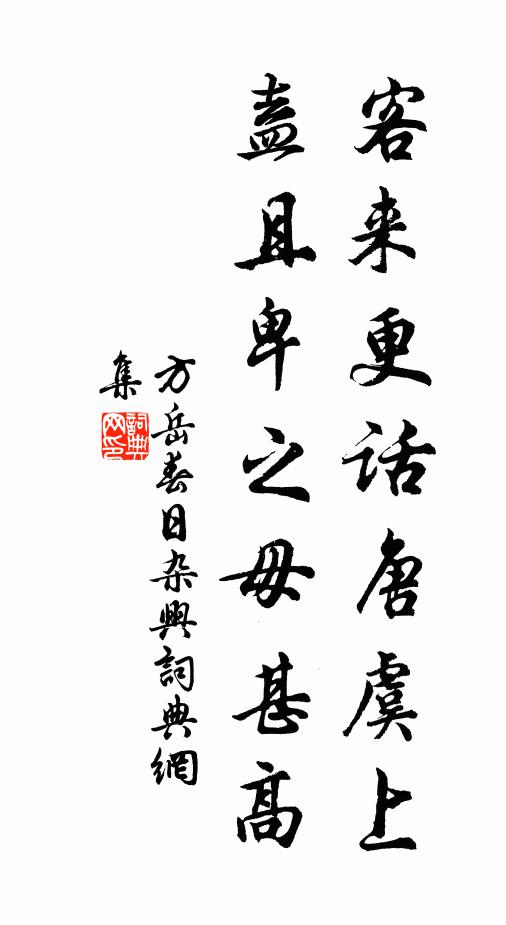 客来更話唐虞上
盍且卑之毋甚高
方岳春日杂興詞典網
集
詞典网印